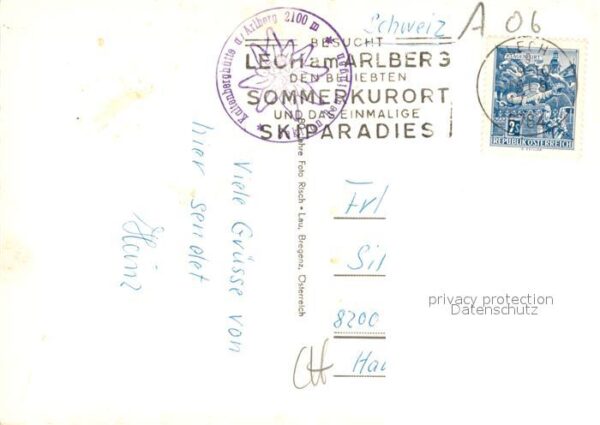 Kaltenberghütte a/Arlberg 2100 m
Schweiz
A 06
BESUCHT
LECH am ARLBERG
DEN BELIEBTEN
SOMMERKURORT
UND DAS EINMALIGE
SKIPARADIES
LECH
6764
REPUBLIK ÖSTERREICH
Jahre Foto Risch • Lau, Bregenz, Österreich
Viele Grüsse von
hier sendet
Heinz
Frl
Sil
8200
privacy protection
Datenschutz